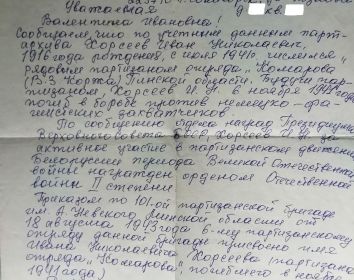 Уважаемая
д кв.
Валентина Ивановна!
Сообщаем что по учетным данным парт-
архива Хорсеев Иван Николаевич,
1916 года рождения, с июня 194 г. числился
рядовым партизаном отряда "Комарова"
(В-З Коржа) Минской области. Будучи пар-
тизаном, Хорсеев И.Н. в ноябре 1941 года
погиб в борьбе против немецко-фа-
шистских захватчиков.
По сообщению отдела наград Президиума
Верховного Совета СССР, Хорсеев И.Н. за
активное участие в партизанском движении
Белоруссии периода Великой Отечественной
войны награжден орденом Отечественной
войны II степени
Приказом по 101-ой партизанской бригаде
им. А. Невского Минской области от
18 августа 1943 года 6-му партизанскому
отряду данной бригады присвоено имя
Ивана Николаевича Хорсеева партизана
отряда "Комарова", погибшего в ноябре
1941 года)